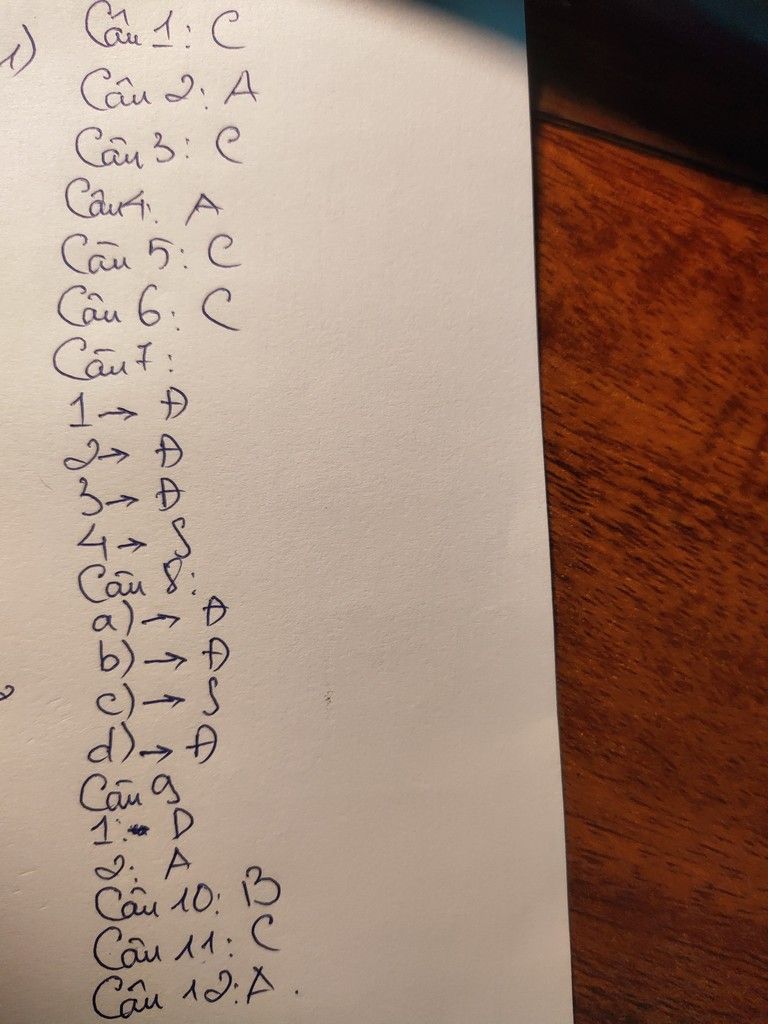 1)
Câu 1: C
Câu 2: A
Câu 3: C
Câu 4. A
Câu 5: C
Câu 6: C
Câu 7:
1 → Đ
2 → Đ
3 → Đ
4 → S
Câu 8:
a) → Đ
b) → Đ
c) → S
d) → Đ
Câu 9
1: D
2: A
Câu 10: B
Câu 11: C
Câu 12: A.